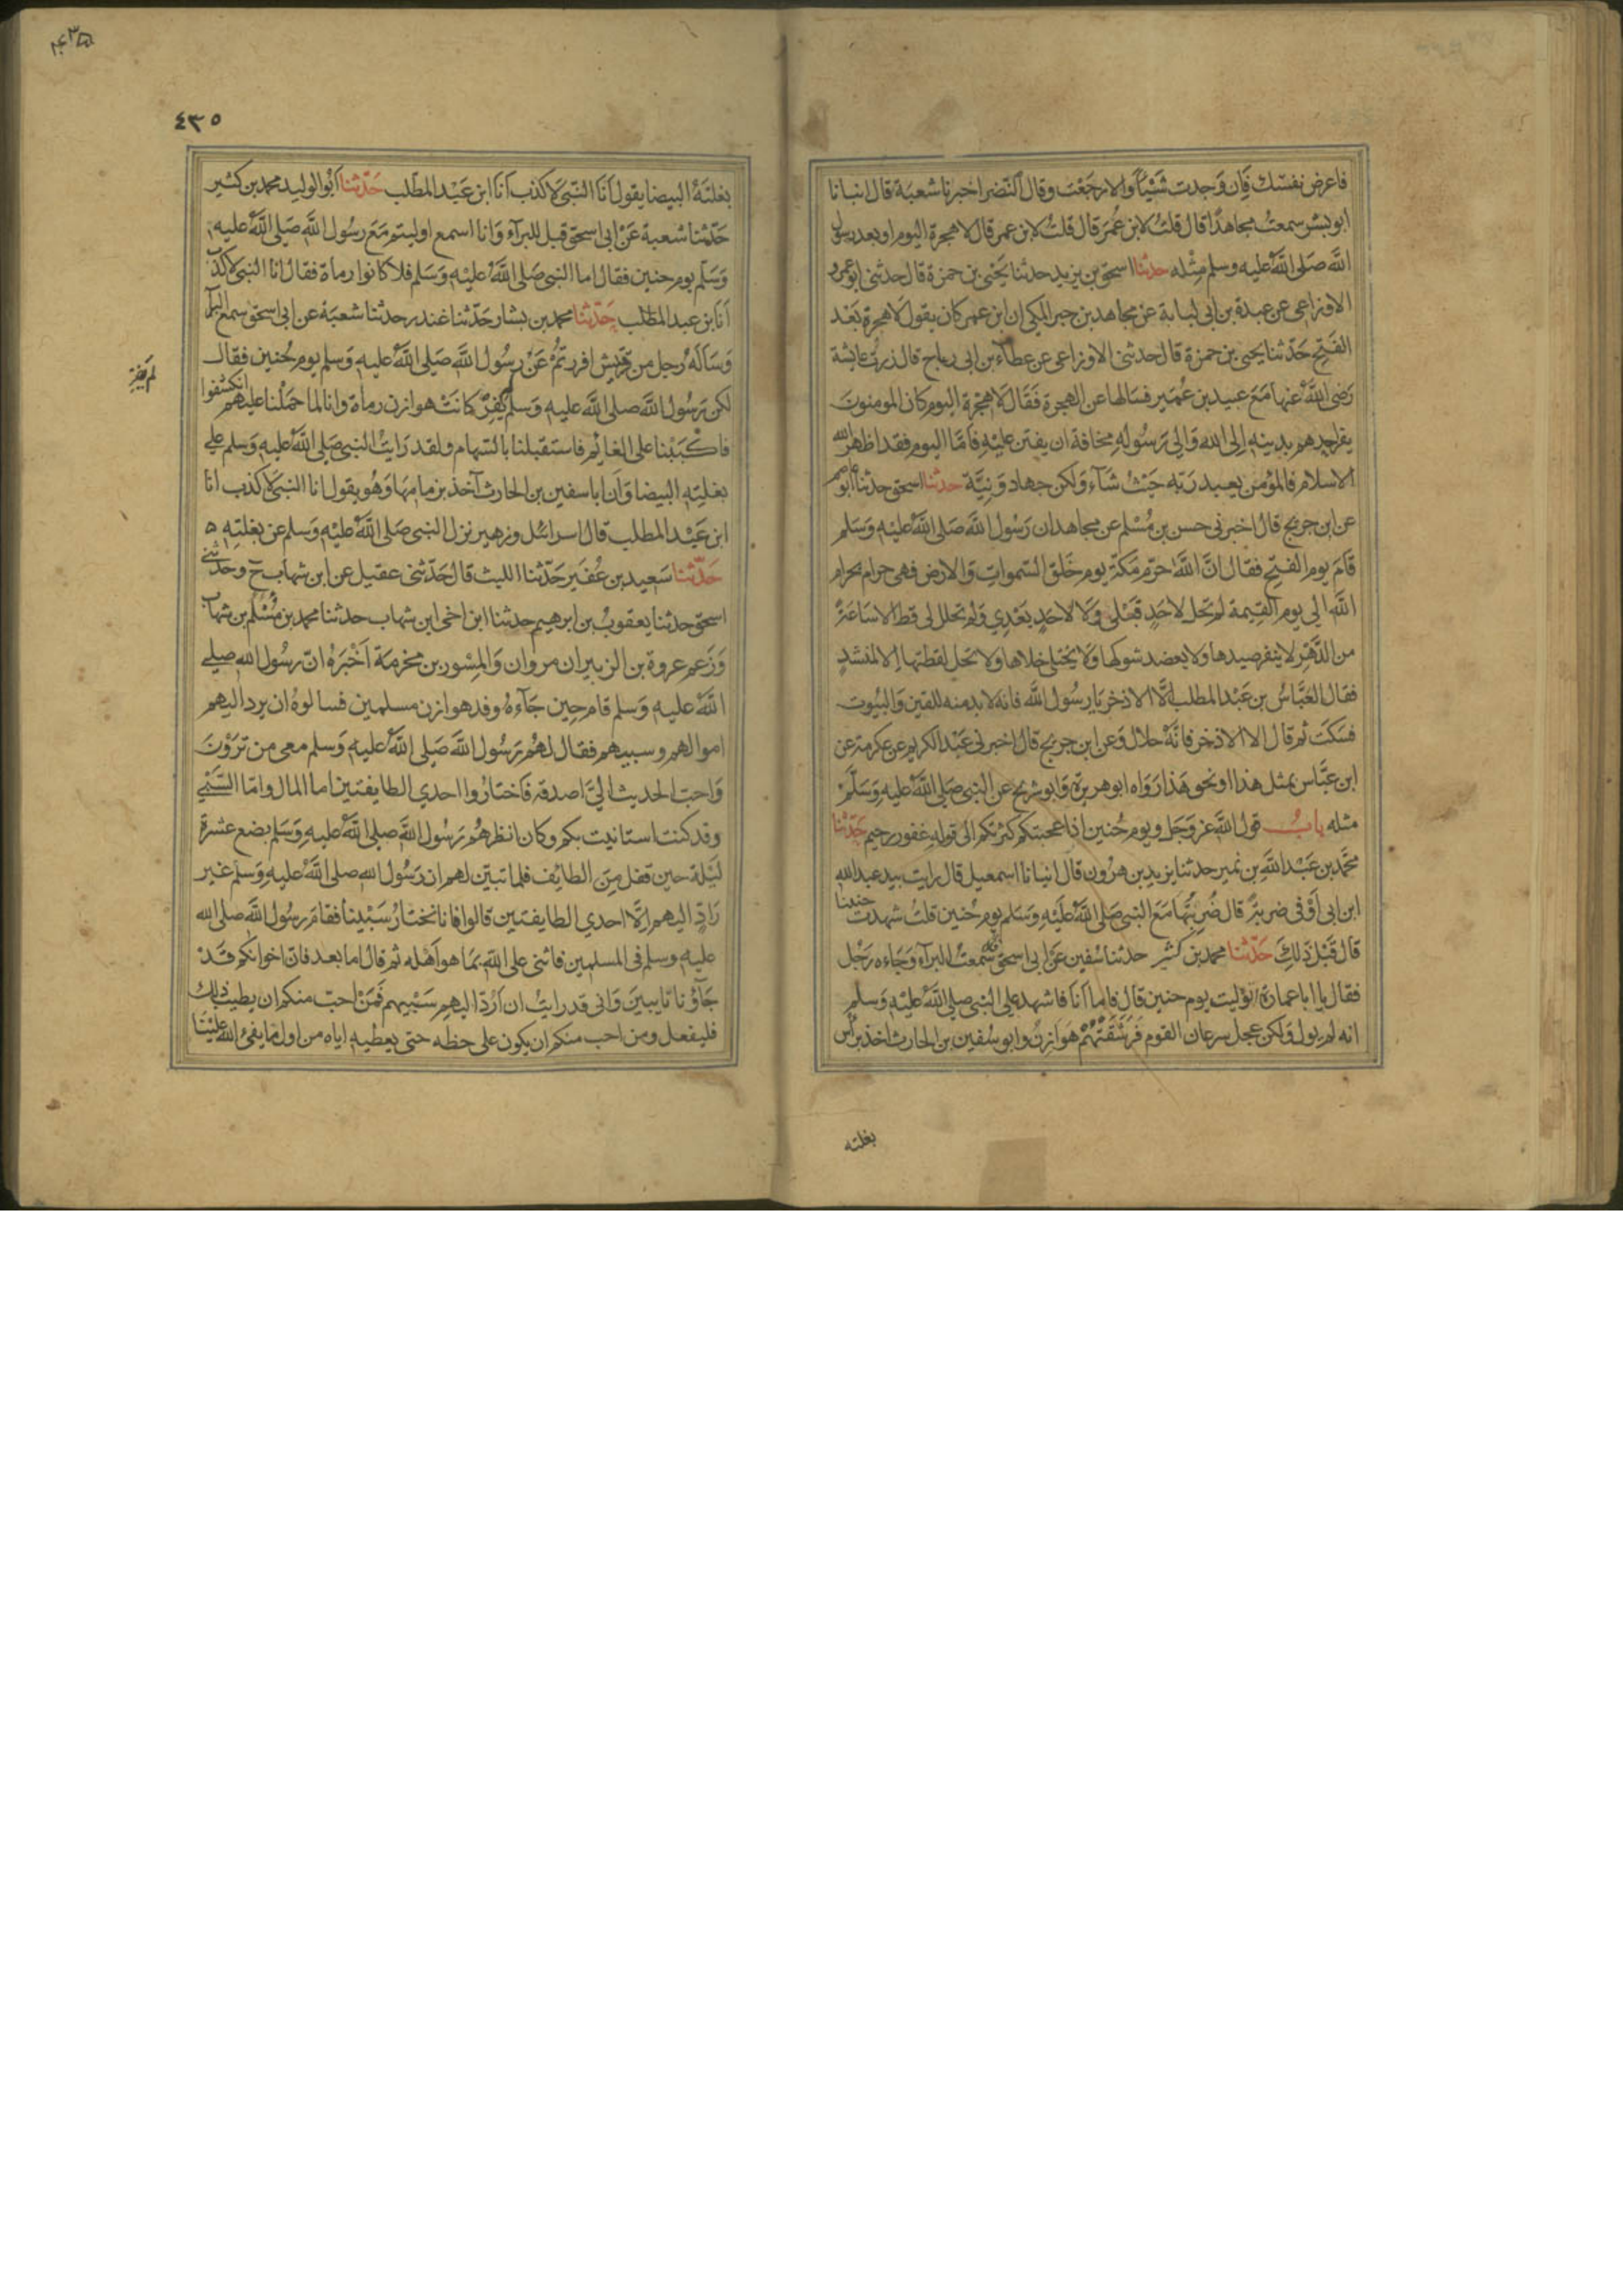 فاعرض نفسك فان وجدت شيئا والا رجعت وقال النضر اخبرنا شعبة قال انبانا
ابو بشر سمعت مجاهدا قال قلت لابن عمر قال قلت لابن عمر قال لا هجرة اليوم او بعد رسول
الله صلى الله عليه وسلم مثله حدثنا اسحق بن يزيد حدثنا يحيى بن حمزة قال حدثنى ابو عمرو
الاوزاعى عن عبدة بن ابى لبابة عن مجاهد بن جبر المكى ان ابن عمر كان يقول لا هجرة بعد
الفتح حدثنا يحيى بن حمزة قال حدثنى الاوزاعى عن عطاء بن ابى رباح قال زرت عايشة
رضى الله عنها مع عبيد بن عمير فسالها عن الهجرة فقال لا هجرة اليوم كان المومنون
يفر احدهم بدينه الى الله والى رسوله مخافة ان يفتن عليه فاما اليوم فقد اظهر الله
الاسلام فالمؤمن يعبد ربه حيث شاء ولكن جهاد ونية حدثنا اسحق حدثنا ابو عاصم
عن ابن جريج قال اخبرنى حسن بن مسلم عن مجاهد ان رسول الله صلى الله عليه وسلم
قام يوم الفتح فقال ان الله حرم مكة يوم خلق السموات والارض فهى حرام بحرام
الله الى يوم القيمة لم تحل لاحد قبلى ولا لاحد بعدي ولم تحلل لى قط الا ساعة
من الدهر لا ينفر صيدها ولا يعضد شوكها ولا يختلى خلاها ولا تحل لقطتها الا لمنشد
فقال العباس بن عبد المطلب الا الاذخر يا رسول الله فانه لا بد منه للقين والبيوت
فسكت ثم قال الا الاذخر فانه حلال وعن ابن جريج قال اخبرنى عبد الكريم عن عكرمة عن
ابن عباس بمثل هذا او نحو هذا رواه ابو هريرة وابو شريح عن النبى صلى الله عليه وسلم
مثله باب قول الله عز وجل ويوم حنين اذ اعجبتكم كثرتكم الى قوله غفور رحيم حدثنا
محمد بن عبد الله بن نمير حدثنا يزيد بن هرون قال انبانا اسمعيل قال رايت بيد عبد الله
ابن ابى اوفى ضربة قال ضربتها مع النبى صلى الله عليه وسلم يوم حنين قلت شهدت حنينا
قال قبل ذلك حدثنا محمد بن كثير حدثنا سفين عن ابى اسحق سمعت البراء وجاءه رجل
فقال يا ابا عمارة اتوليت يوم حنين قال فاما انا فاشهد على النبى صلى الله عليه وسلم
انه لم يول ولكن عجل سرعان القوم فرشقتهم هوازن وابو سفين بن الحارث اخذ براس
بغلته
٤٣٥
٤٣٥
بغلته البيضا يقول انا النبى لا كذب انا ابن عبد المطلب حدثنا ابو الوليد محمد بن كثير
حدثنا شعبة عن ابى اسحق قيل للبراء وانا اسمع اوليتم مع رسول الله صلى الله عليه
وسلم يوم حنين فقال اما النبى صلى الله عليه وسلم فلا كانوا رماة فقال انا النبى لا كذب
انا بن عبد المطلب حدثنا محمد بن بشار حدثنا غندر حدثنا شعبة عن ابى اسحق سمع البرا
وساله رجل من قريش افررتم عن رسول الله صلى الله عليه وسلم يوم حنين فقال
لكن رسول الله صلى الله عليه وسلم يفر كانت هوازن رماة وانا لما حملنا عليهم انكشفوا
لم يفر
فاكببنا على الغنايم فاستقبلنا بالسهام ولقد رايت النبى صلى الله عليه وسلم على
بغلته البيضا وان ابا سفين بن الحارث آخذ بزمامها وهو يقول انا النبى لا كذب انا
ابن عبد المطلب قال اسرائل وزهير نزل النبى صلى الله عليه وسلم عن بغلته ه
حدثنا سعيد بن عفير حدثنا الليث قال حدثنى عقيل عن ابن شهاب ح وحدثنى
اسحق حدثنا يعقوب بن ابرهيم حدثنا ابن اخى ابن شهاب حدثنا محمد بن مسلم بن شهاب
وزعم عروة بن الزبير ان مروان والمسور بن مخرمة اخبره ان رسول الله صلى
الله عليه وسلم قام حين جاءه وفد هوازن مسلمين فسالوه ان يرد اليهم
اموالهم وسبيهم فقال لهم رسول الله صلى الله عليه وسلم معى من ترون
واحب الحديث الى اصدقه فاختاروا احدى الطايفتين اما المال واما السبى
وقد كنت استانيت بكم وكان انظرهم رسول الله صلى الله عليه وسلم بضع عشرة
ليلة حين قفل من الطائف فلما تبين لهم ان رسول الله صلى الله عليه وسلم غير
راد اليهم الا احدى الطايفتين قالوا فانا نختار سبينا فقام رسول الله صلى الله
عليه وسلم فى المسلمين فاثنى على الله بما هو اهله ثم قال اما بعد فان اخوانكم قد
جاؤنا تايبين وانى قد رايت ان ارد اليهم سبيهم فمن احب منكم ان يطيب ذلك
فليفعل ومن احب منكم ان يكون على حظه حتى يعطيه اياه من اول ما يفىء الله علينا